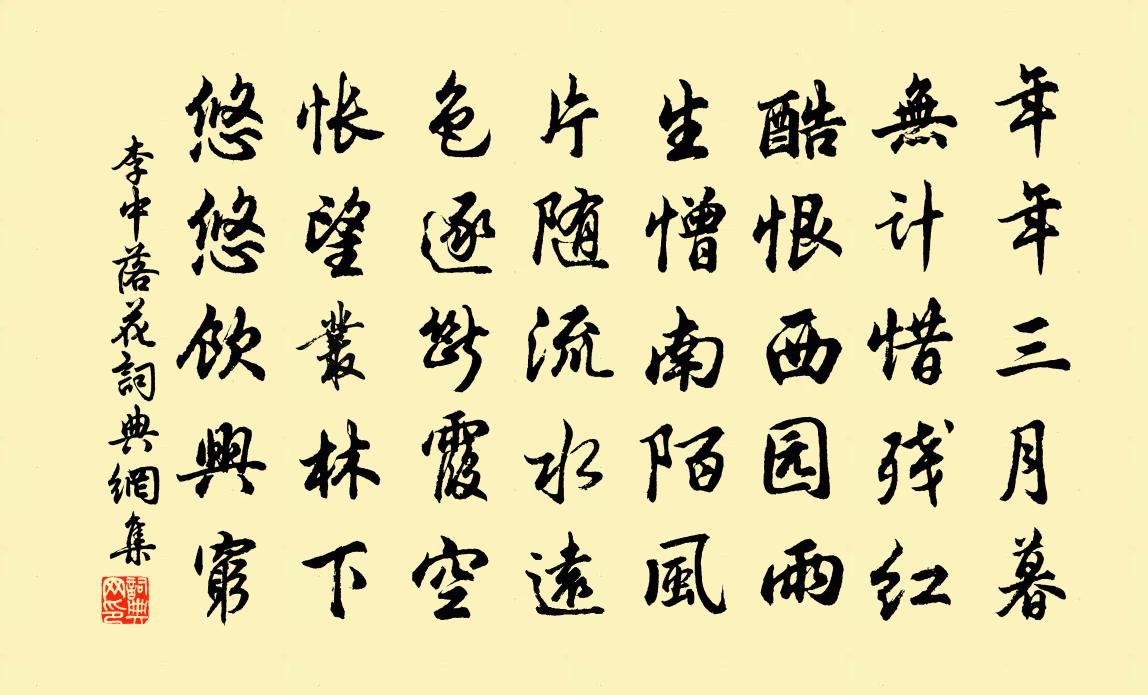 年年三月暮
無计惜残红
酷恨西园雨
生憎南陌風
片随流水遠
色逐斷霞空
怅望叢林下
悠悠飲興窮
李中落花詞典網集
詞典网印